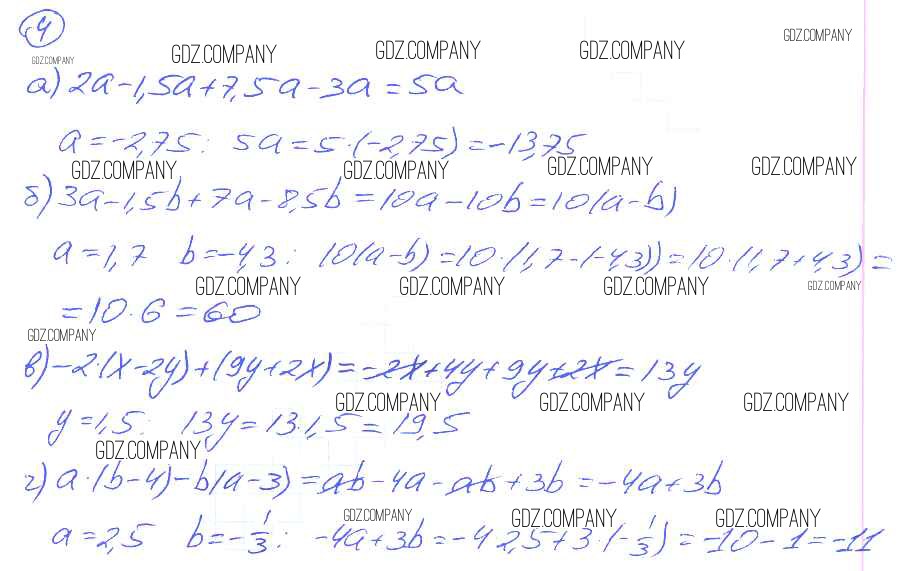 4
GDZ.COMPANY GDZ.COMPANY GDZ.COMPANY GDZ.COMPANY GDZ.COMPANY
а) 2a-1,5a+7,5a-3a=5a
a=-2,75: 5a=5·(-2,75)=-13,75
GDZ.COMPANY GDZ.COMPANY GDZ.COMPANY GDZ.COMPANY
б) 3a-1,5b+7a-8,5b=10a-10b=10(a-b)
a=1,7 b=-4,3: 10(a-b)=10·(1,7-(-4,3))=10·(1,7+4,3)=
GDZ.COMPANY GDZ.COMPANY GDZ.COMPANY GDZ.COMPANY
=10·6=60
GDZ.COMPANY
в) -2·(x-2y)+(9y+2x)=-2x+4y+9y+2x=13y
GDZ.COMPANY GDZ.COMPANY GDZ.COMPANY
y=1,5: 13y=13·1,5=19,5
GDZ.COMPANY
г) a·(b-4)-b(a-3)=ab-4a-ab+3b=-4a+3b
GDZ.COMPANY GDZ.COMPANY GDZ.COMPANY
a=2,5 b=-1/3: -4a+3b=-4·2,5+3·(-1/3)=-10-1=-11